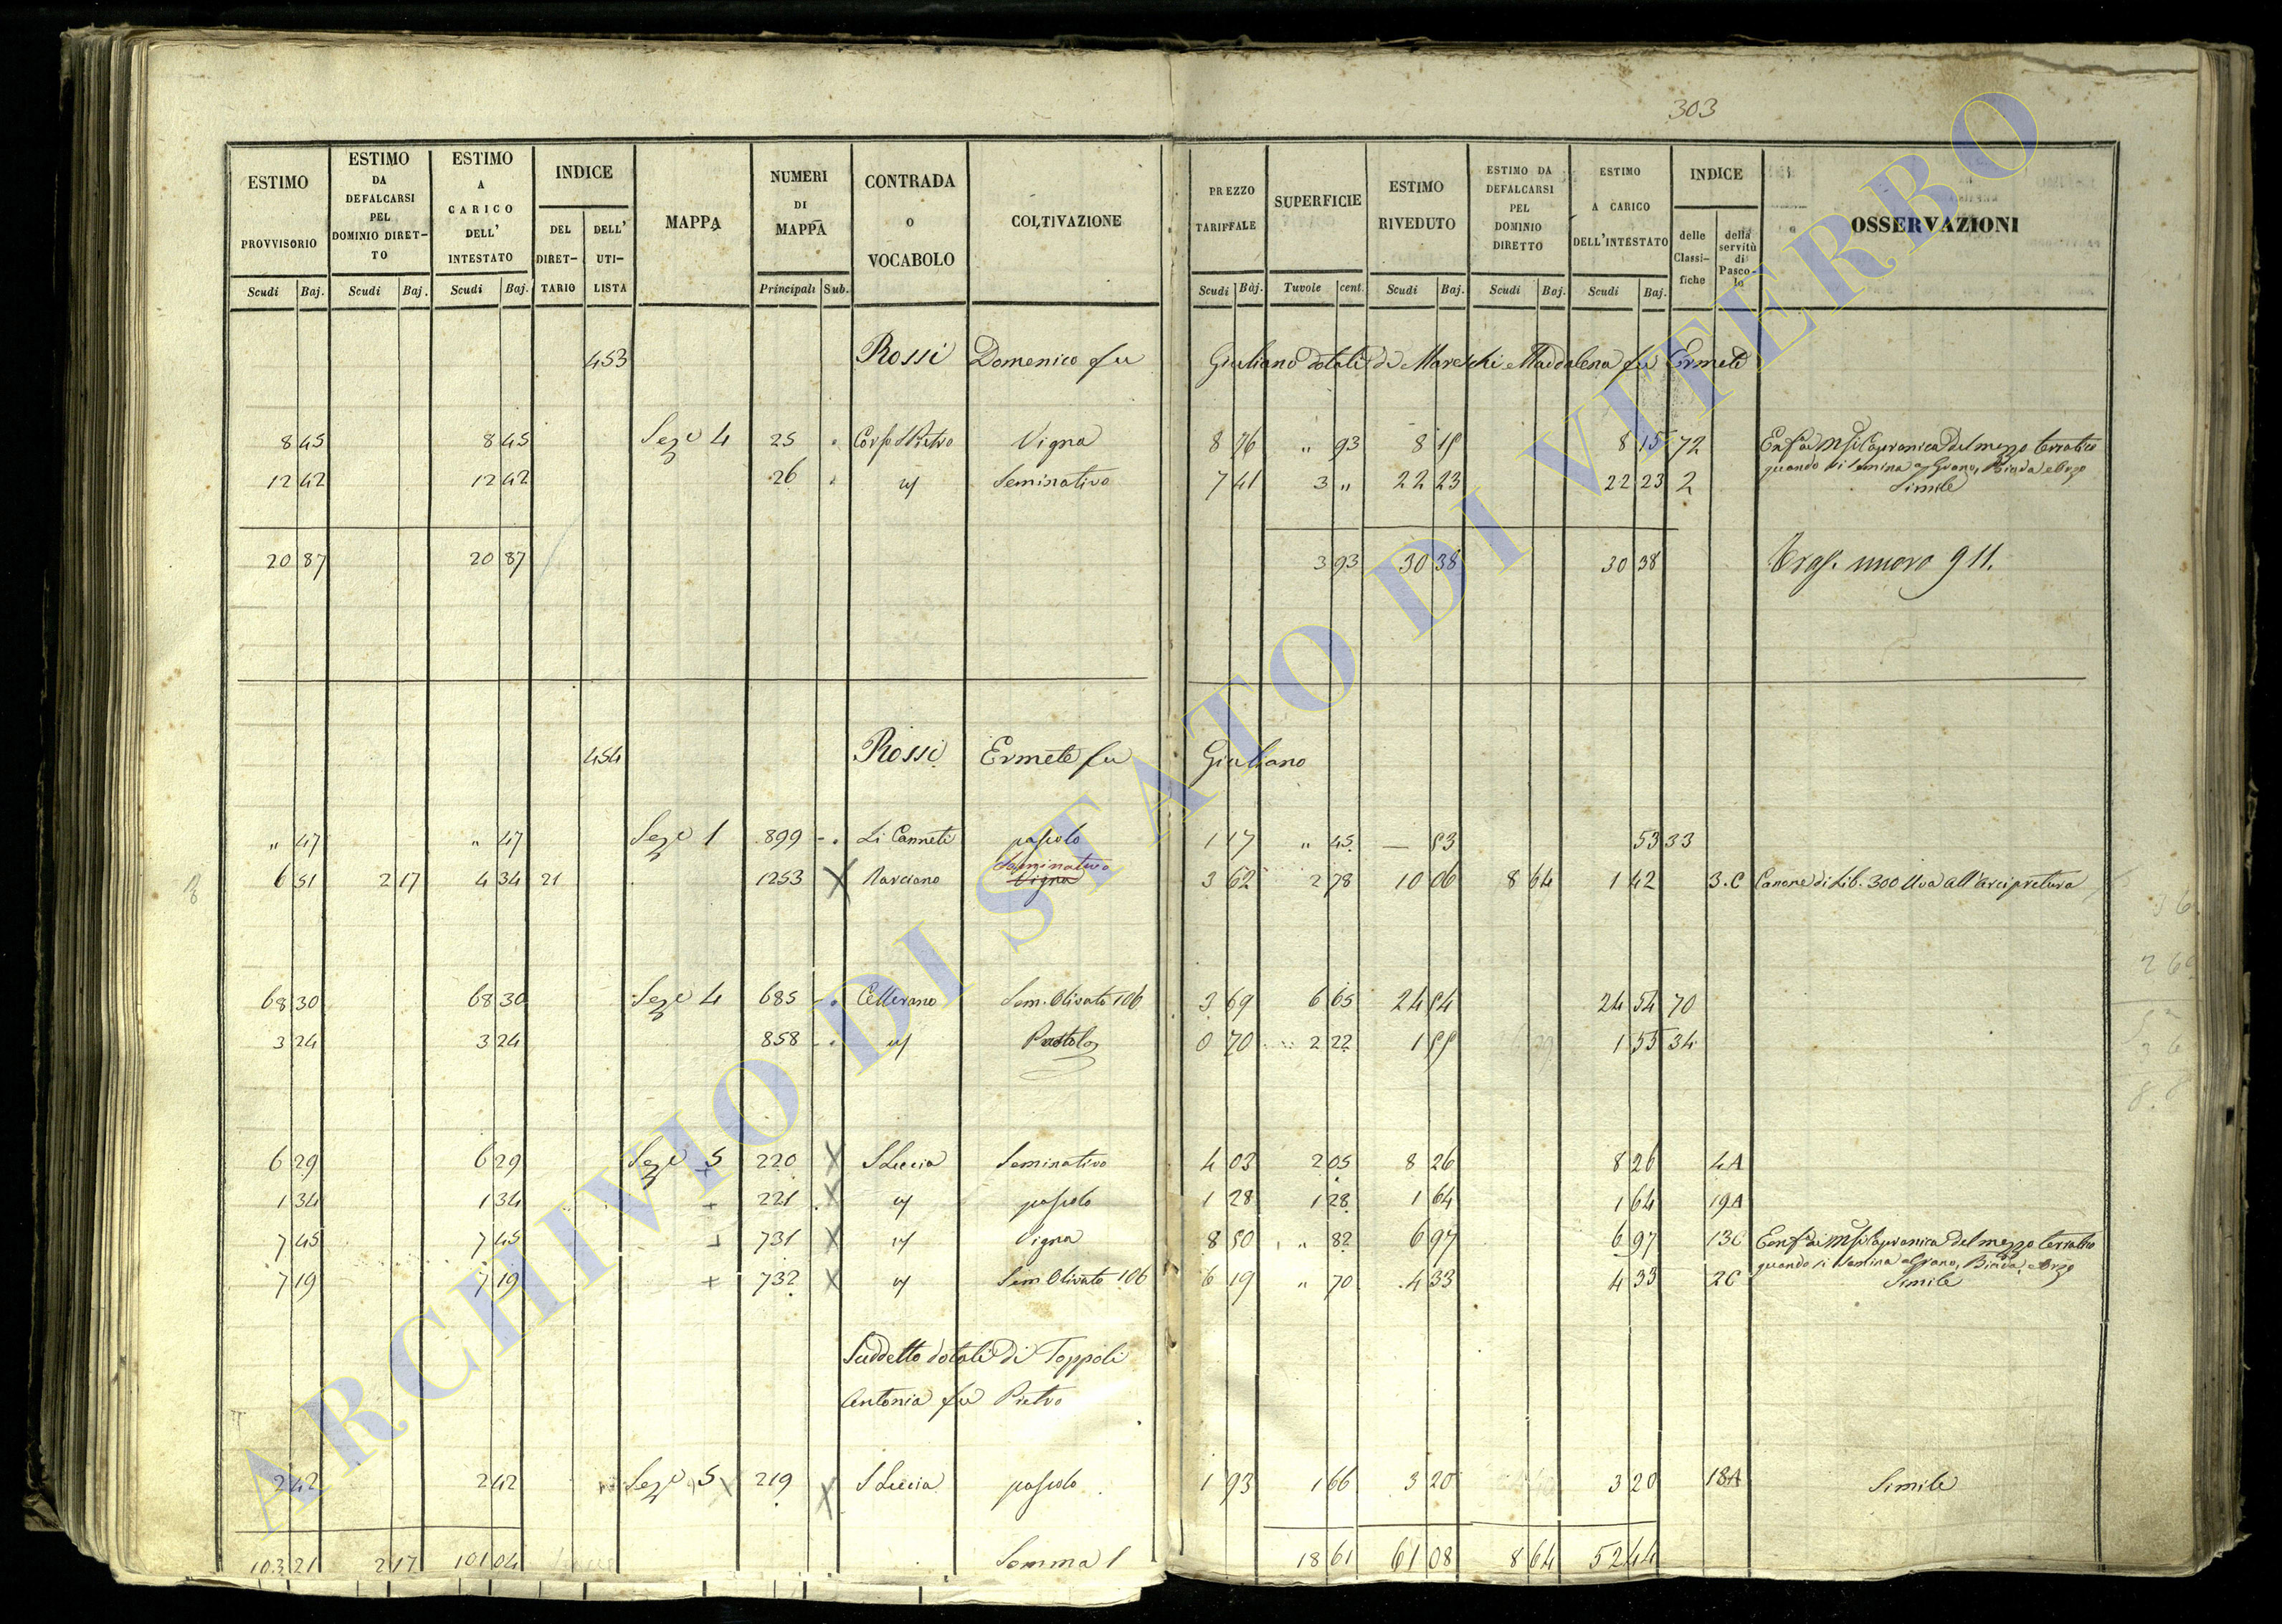 303
ESTIMO PROVVISORIO Scudi Baj.
ESTIMO DA DEFALCARSI PEL DOMINIO DIRET-TO Scudi Baj.
ESTIMO A CARICO DELL' INTESTATO Scudi Baj.
INDICE DEL DIRET-TARIO DELL' UTI-LISTA
MAPPA
NUMERI DI MAPPA Principali Sub.
CONTRADA O VOCABOLO
COLTIVAZIONE
PREZZO TARIFFALE Scudi Baj.
SUPERFICIE Tavole cent.
ESTIMO RIVEDUTO Scudi Baj.
ESTIMO DA DEFALCARSI PEL DOMINIO DIRETTO Scudi Baj.
ESTIMO A CARICO DELL'INTESTATO Scudi Baj.
INDICE delle Classi-fiche della servitù di Pasco-lo
OSSERVAZIONI
453 Rossi Domenico fu Giuliano dotali di Mareschi Maddalena fu Ermete
8 45 8 45 Sez.e 4 25 Vigna 8 76 " 93 8 15 8 15 72 Capranica del mezzo terratico
quando si semina a Grano, Biada e Orzo
12 42 12 42 26 Seminativo 7 41 3 " 22 23 22 23 2 Simile
20 87 20 87 3 93 30 38 30 38 Trasp. nuovo 911.
454 Rossi Ermete fu Giuliano
" 47 " 47 Sez.e 1 899 Li Canneti pascolo 1 17 " 45 — 53 53 33
Seminativo
6 51 2 17 4 34 21 1253 X Marciano Vigna 3 62 2 78 10 06 8 64 1 42 3.C Canone di Lib. 300 Uva all'arcipretura
68 30 68 30 Sez.e 4 685 Cellerano Sem. Olivato 106 3 69 6 65 24 54 24 54 70
3 24 3 24 858 Pascolo 0 70 2 22 1 55 1 55 34
6 29 6 29 Sez.e 5 220 X S Lucia Seminativo 4 03 2 05 8 26 8 26 4A
1 34 1 34 + 221 X pascolo 1 28 1 28 1 64 1 64 19A
7 45 7 45 + 731 X Vigna 8 50 " 82 6 97 6 97 13C Capranica del mezzo terratico
quando si semina a Grano, Biada, e Orzo
7 19 7 19 + 732 X Sem. Olivato 106 6 19 " 70 4 33 4 33 2C Simile
Suddetto dotali di Toppoli
Antonia fu Pietro
2 42 2 42 Sez.e 5 X 219 X S Lucia pascolo 1 93 1 66 3 20 3 20 18A Simile
103 21 2 17 101 04 Somma 1 18 61 61 08 8 64 52 44
ARCHIVIO DI STATO DI VITERBO